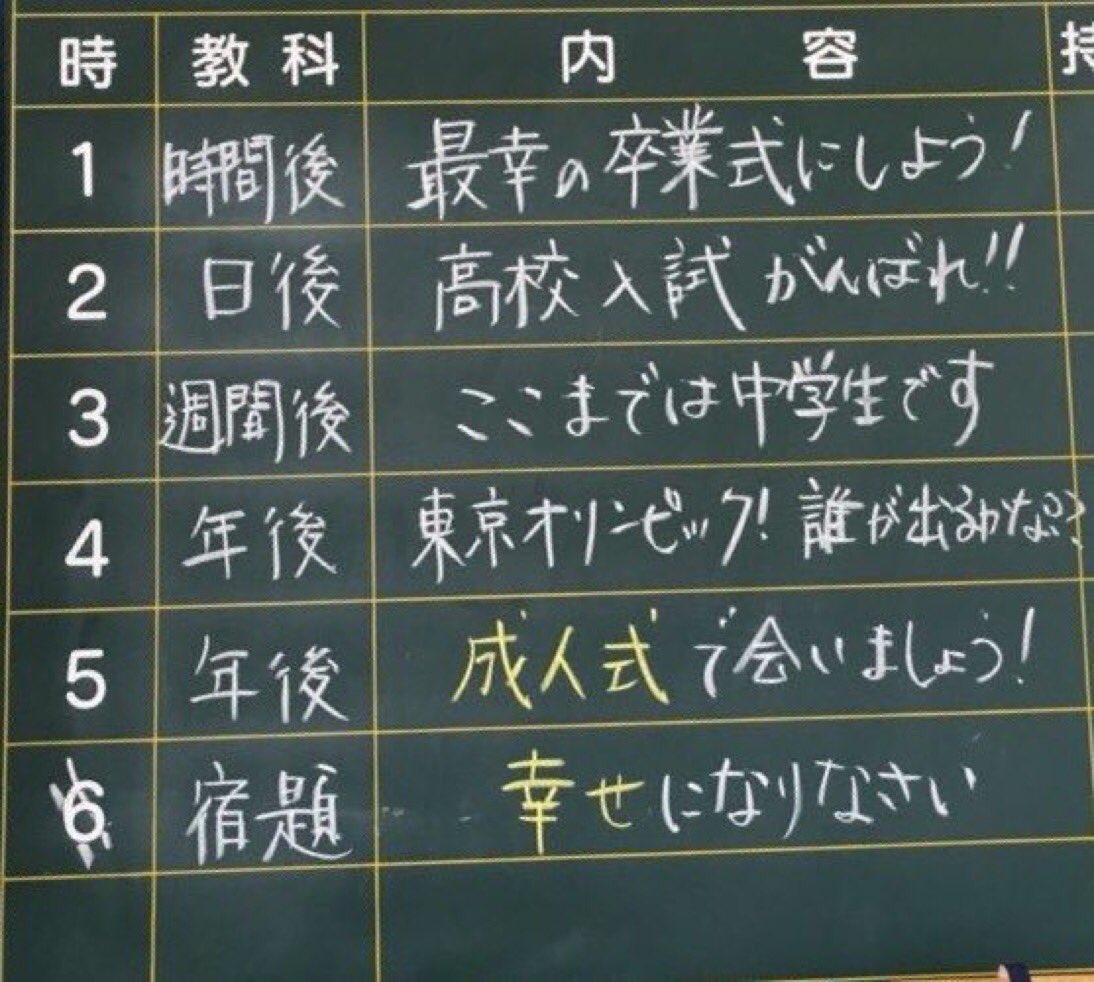 時 教科 内容 持
1 時間後 最幸の卒業式にしよう!
2 日後 高校入試がんばれ!!
3 週間後 ここまでは中学生です
4 年後 東京オリンピック!誰が出るかな??
5 年後 成人式で会いましょう!
6 宿題 幸せになりなさい